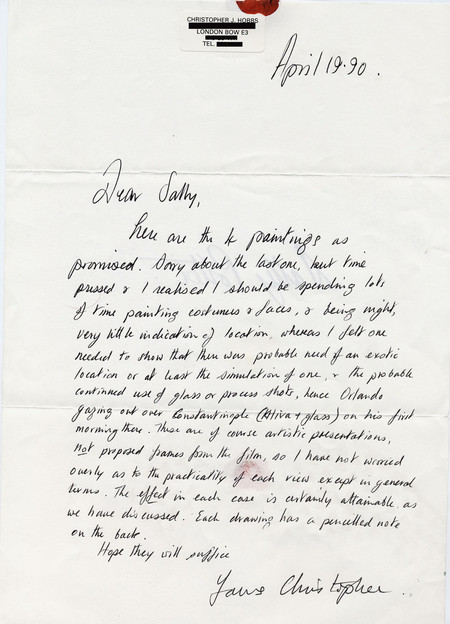 CHRISTOPHER J. HOBBS
LONDON BOW E3
TEL.
April 19.90.
Dear Sally,
here are the paintings as
promised. Sorry about the last one, but time
pressed & I realised I should be spending lots
of time painting costumes & faces, & being night,
very little indication of location, whereas I felt one
needed to show that there was probable need of an exotic
location or at least the simulation of one, & the probable
continued use of glass or process shots, hence Orlando
gazing out over Constantinople (Khiva + glass) on his first
morning there. These are of course artistic presentations,
not proposed frames from the film, so I have not worried
overly as to the practicality of each view except in general
terms. The effect in each case is certainly attainable, as
we have discussed. Each drawing has a pencilled note
on the back.
Hope they will suffice
Yours Christopher.